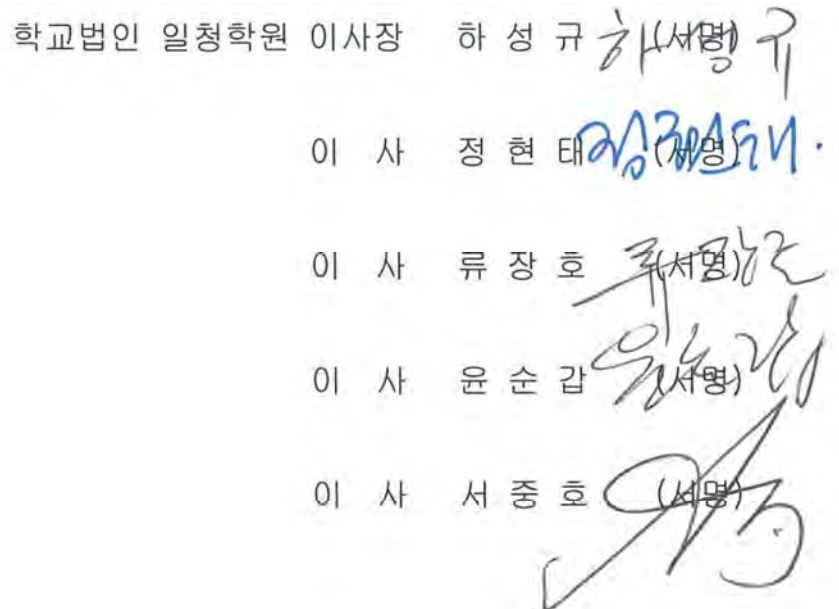 학교법인 일청학원 이사장 하 성 규 (서명)
이 사 정 현 태 (서명)
이 사 류 장 호 (서명)
이 사 윤 순 갑 (서명)
이 사 서 중 호 (서명)